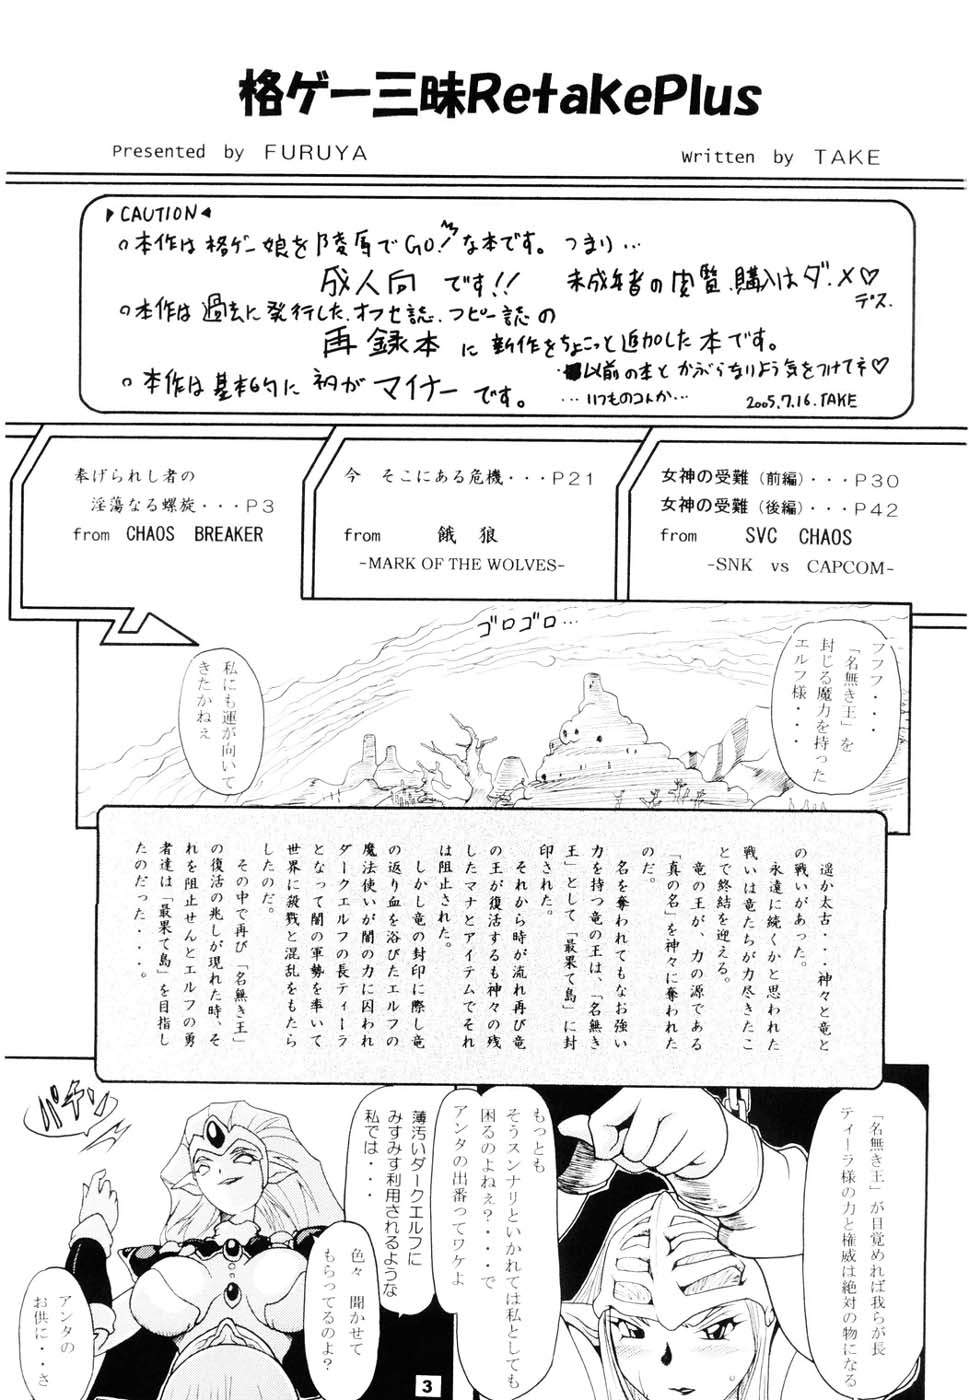 格ゲー三昧RetakePlus
Presented by FURUYA
Written by TAKE
▶CAUTION◀
○本作は格ゲー娘を陵辱でGO!な本です。つまり…
成人向です!! 未成年者の閲覧、購入はダ・メ♡
デス.
○本作は過去に発行したオフセ誌、コピー誌の
再録本に新作をちょこっと追加した本です。
以前の本とかぶらなりよう気をつけてネ♡
○本作は基本的にネタがマイナーです。
…いつものコんか…
2005.7.16.TAKE
奉げられし者の
淫蕩なる螺旋・・・P3
from CHAOS BREAKER
今 そこにある危機・・・P21
from 餓狼
-MARK OF THE WOLVES-
女神の受難(前編)・・・P30
女神の受難(後編)・・・P42
from SVC CHAOS
-SNK vs CAPCOM-
ゴロゴロ…
フフフ・・・
「名無き王」を
封じる魔力を持った
エルフ様・・・
私にも運が向いて
きたかねぇ
遥か太古・・・神々と竜と
の戦いがあった。
永遠に続くかと思われた
戦いは竜たちが力尽きたこ
とで終結を迎える。
竜の王が、力の源である
「真の名」を神々に奪われた
のだ。
名を奪われてもなお強い
力を持つ竜の王は、「名無き
王」として「最果て島」に封
印された。
それから時が流れ再び竜
の王が復活するも神々の残
したマナとアイテムでそれ
は阻止された。
しかし竜の封印に際し竜
の返り血を浴びたエルフの
魔法使いが闇の力に囚われ
ダークエルフの長ティーラ
となって闇の軍勢を率いて
世界に殺戮と混乱をもたら
したのだ。
その中で再び「名無き王」
の復活の兆しが現れた時、そ
れを阻止せんとエルフの勇
者達は「最果て島」を目指し
たのだった・・・・。
「名無き王」が目覚めれば我らが長
ティーラ様の力と権威は絶対の物になる
もっとも
そうスンナリといかれては私としても
困るのよねぇ?・・・で
アンタの出番ってワケよ
薄汚いダークエルフに
みすみす利用されるような
私では・・・
パチン
色々 聞かせて
もらってるのよ?
アンタの
お供に・・さ
3